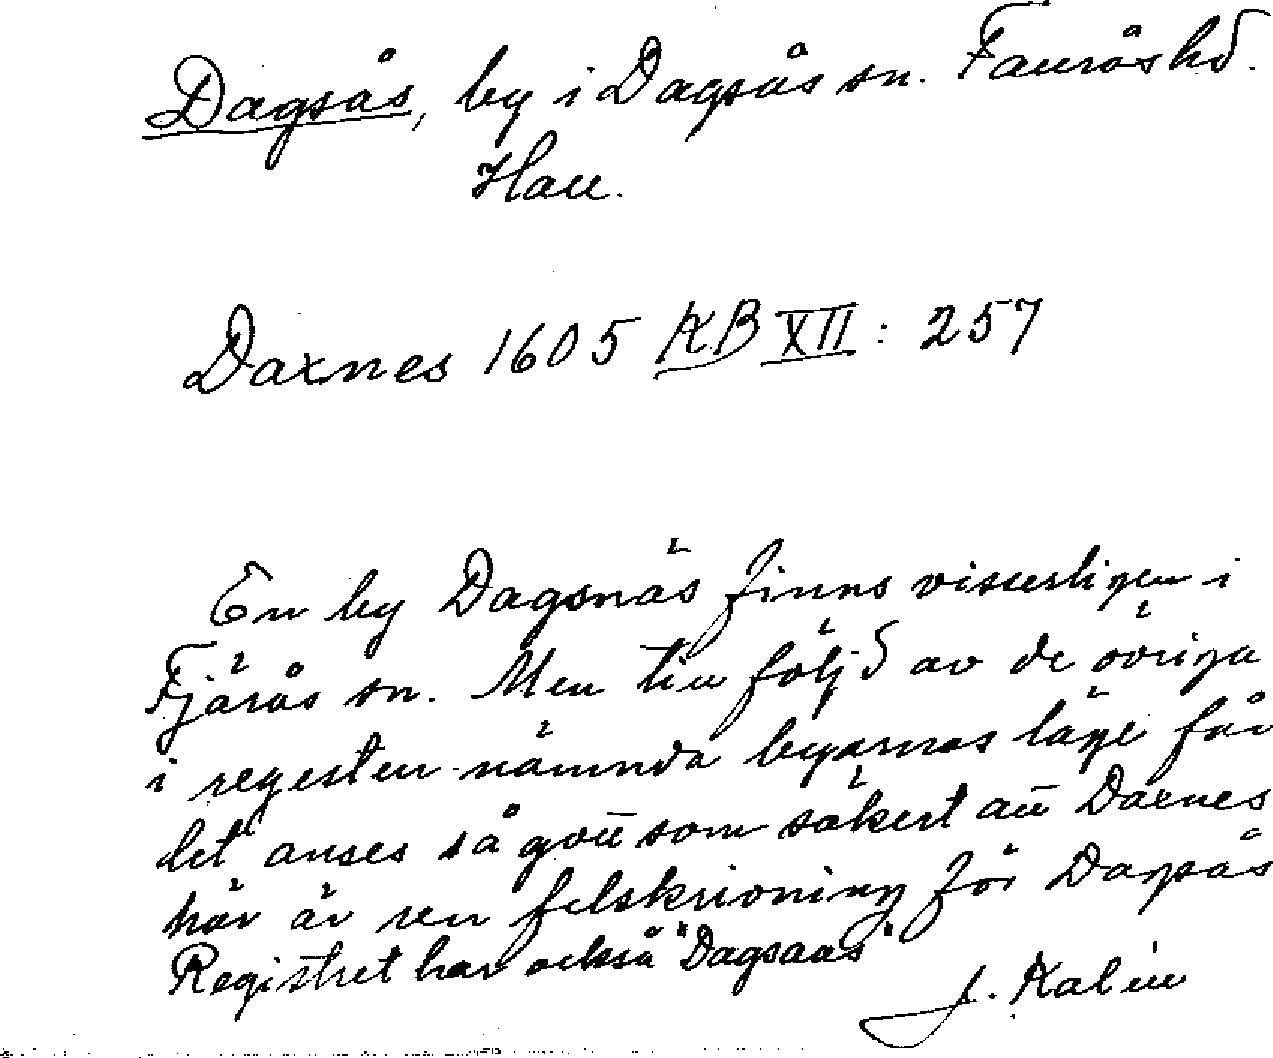 Dagsås, by i Dagsås sn. Faurås hd.
Hall.
Daxnes 1605 KB XII: 257
En by Dagsnäs finns visserligen i
Fjärås sn. Men till följd av de övriga
i regesten nämnda byarnas läge får
det anses så gott som säkert att Daxnes
här är ren felskrivning för Dagsås
Registret har också "Dagsaas"
J. Kalén